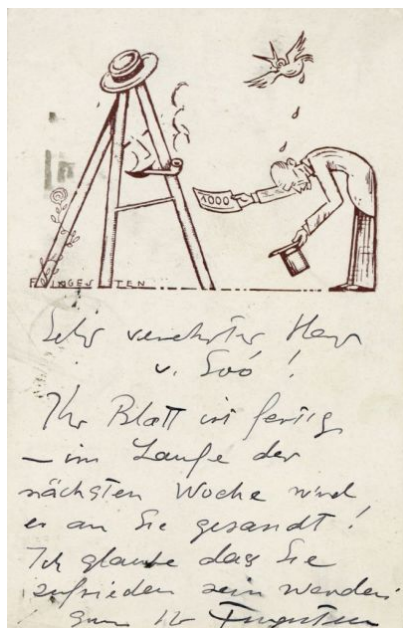 1000
FINGESTEN
Sehr verehrter Herr
v. Soó!
Ihr Blatt ist fertig
– im Laufe der
nächsten Woche wird
es an Sie gesandt!
Ich glaube das Sie
zufrieden sein werden!
Ihr Fingesten